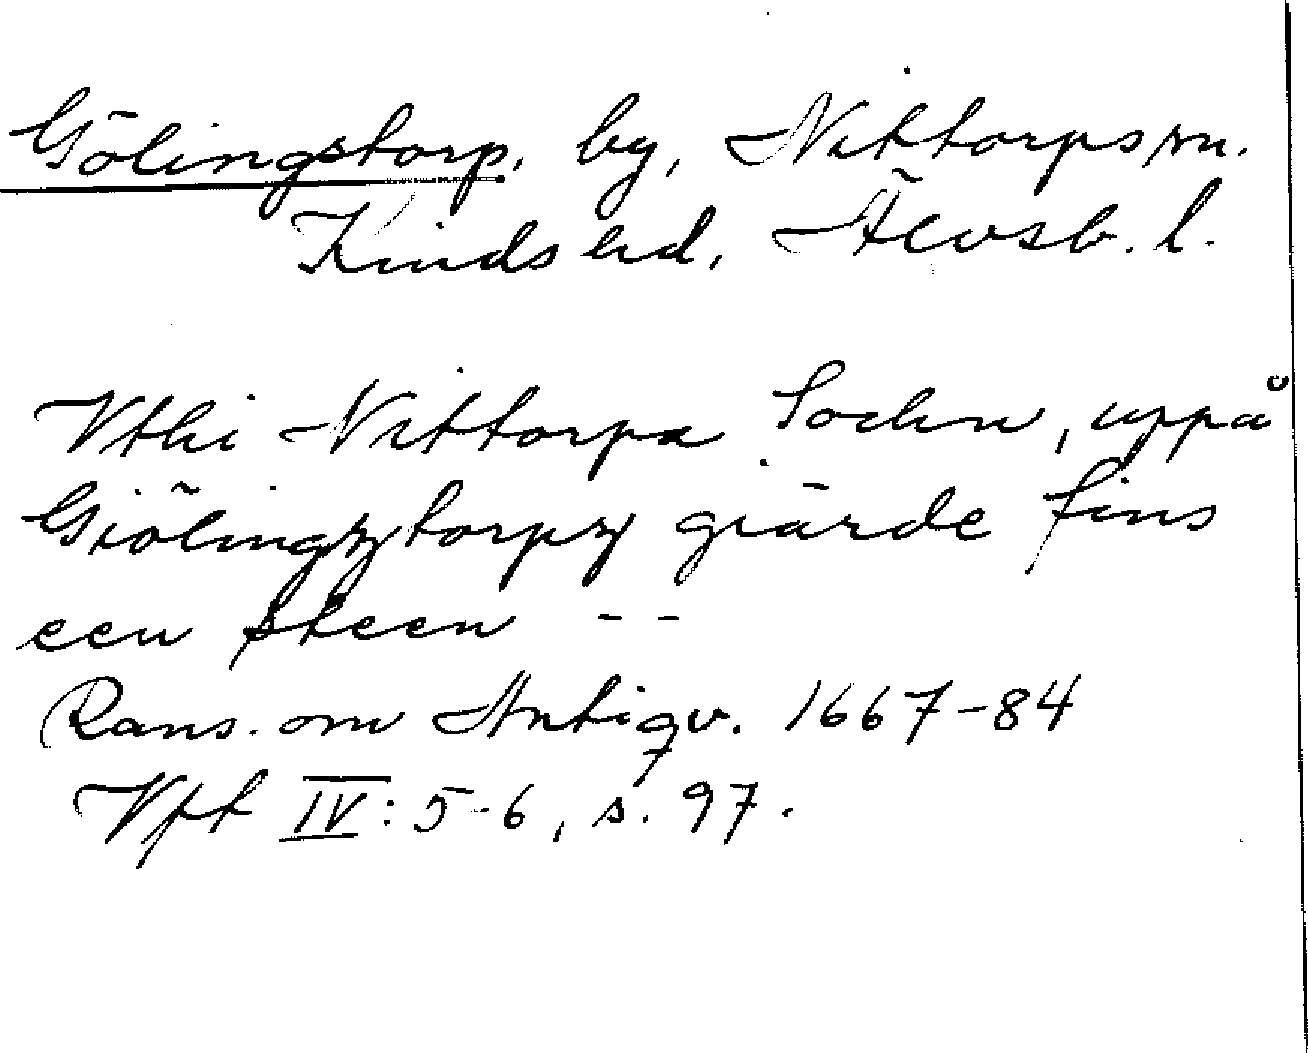 Gölingstorp, by, Nittorps sn.
Kinds hd, Älvsb. l.
Vthi Nittorpa Sochn, uppå
Giölingztorpz giärde fins
een steen --
Rans. om Antiqv. 1667-84
Vpt IV: 5-6, s. 97.